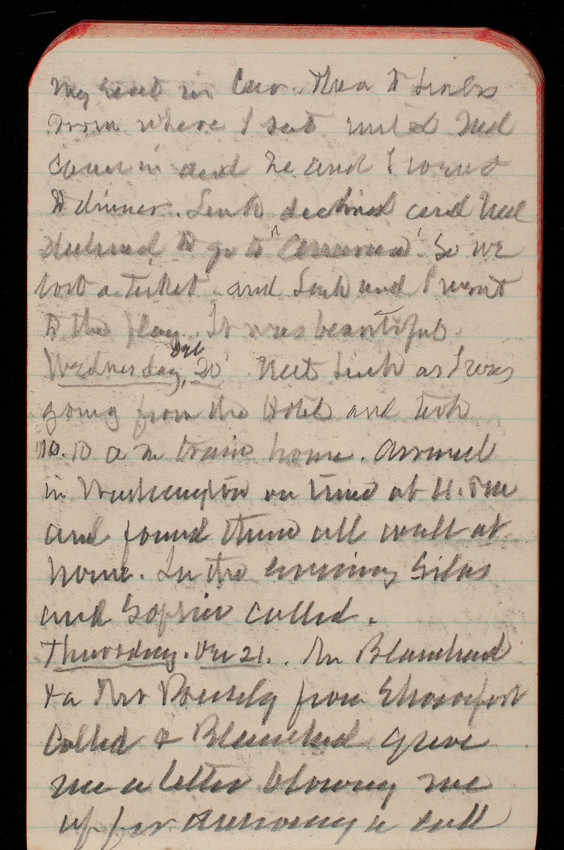 my seat in Car. Then to
room where I sat until Ned
came in and he and I went
to dinner. declined and Ned
declined to go to So we
lost a ticket. and and I went
to the play. It was beautiful.
Wednesday, Dec 20 Met as I was
going from the Hotel and took
10. a m train home. arrived
in Washington on time at 4. P M
and found them all well at
home. In the evening Silas
and Sophie called.
Thursday. Dec 21. Mr Blanchard
& a Mr from
called & Blanchard gave
me a letter blowing me
up for a call